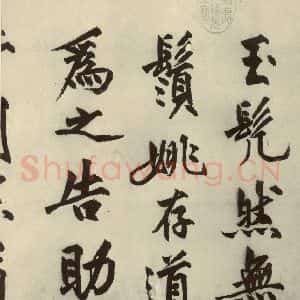 玉髡然無
鬚姚存道
爲之告助
Shufawang.CN